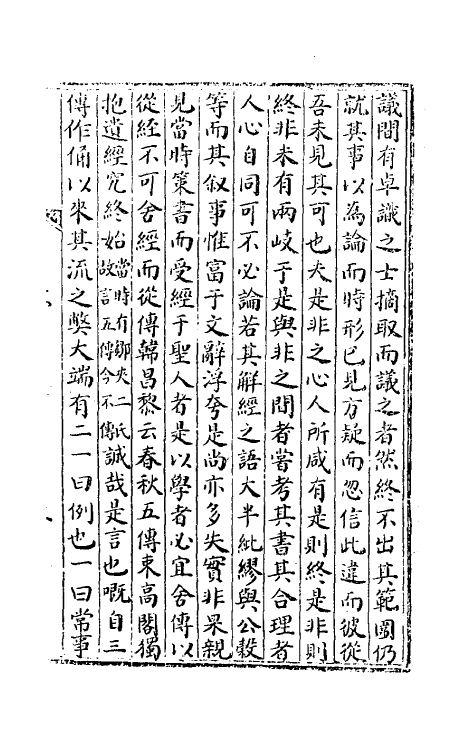 議間有卓識之士摘取而議之者然終不出其範圍仍
就其事以為論而時形已見方疑而忽信此違而彼從
吾未見其可也夫是非之心人所咸有是則終是非則
終非未有兩岐于是與非之間者嘗考其書其合理者
人心自同可不必論若其解經之語大半紕繆與公穀
等而其叙事惟富于文辭浮夸是尚亦多失實非果親
見當時策書而受經于聖人者是以學者必宜舍傳以
從經不可舍經而從傳韓昌黎云春秋五傳束高閣獨
抱遺經究終始當時有鄒夾二氏故言五傳今不傳誠哉是言也嘅自三
傳作俑以來其流之弊大端有二一曰例也一曰常事